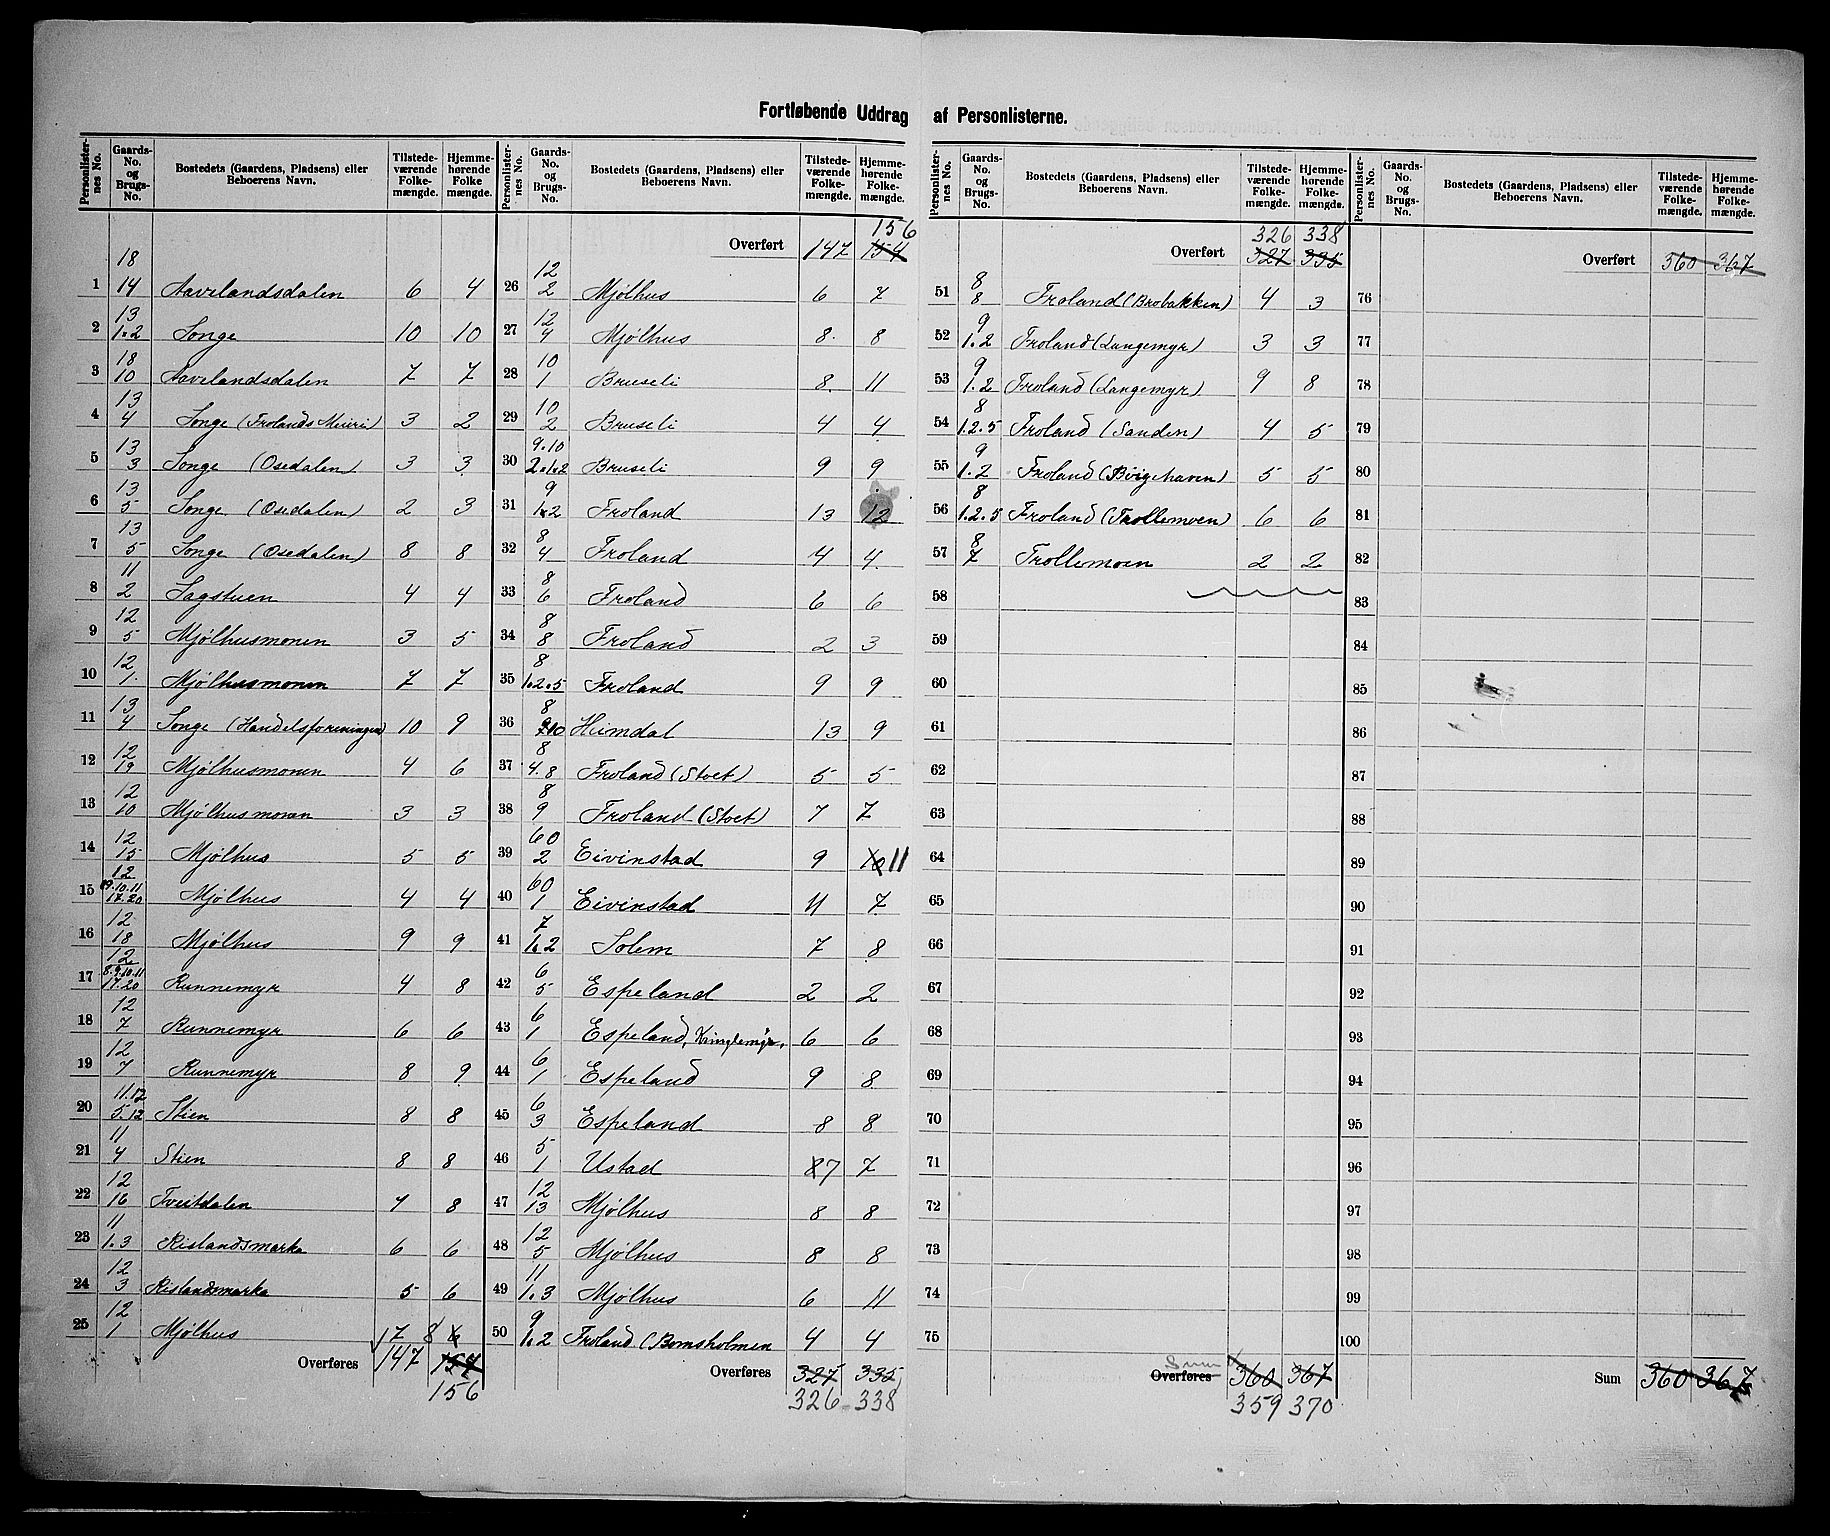 Fortløbende Uddrag af Personlisterne.
Personlister-nes No. | Gaards-No. og Brugs-No. | Bostedets (Gaardens, Pladsens) eller Beboerens Navn. | Tilstede-værende Folke-mængde. | Hjemme-hørende Folke mængde.
1 | 18 14 | Aavelandsdalen | 6 | 4
2 | 13 1.2 | Songe | 10 | 10
3 | 18 10 | Aavelandsdalen | 7 | 7
4 | 13 4 | Songe (Frolands Meieri) | 3 | 2
5 | 13 3 | Songe (Osedalen) | 3 | 3
6 | 13 5 | Songe (Osedalen) | 2 | 3
7 | 13 5 | Songe (Osedalen) | 8 | 8
8 | 11 2 | Sagstuen | 4 | 4
9 | 12 5 | Mjølhusmonen | 3 | 5
10 | 12 1 | Mjølhusmonen | 7 | 7
11 | 13 4 | Songe (Handelsforeningen) | 10 | 9
12 | 12 19 | Mjølhusmonen | 4 | 6
13 | 12 10 | Mjølhusmonen | 3 | 3
14 | 12 15 | Mjølhus | 5 | 5
15 | 12 10.11 17.20 | Mjølhus | 4 | 4
16 | 12 18 | Mjølhus | 9 | 9
17 | 12 8.9.10.11 17.20 | Runnemyr | 4 | 8
18 | 12 7 | Runnemyr | 6 | 6
19 | 12 7 | Runnemyr | 8 | 9
20 | 11.12 5.12 | Stien | 8 | 8
21 | 11 4 | Stien | 8 | 8
22 | 12 16 | Tveitdalen | 7 | 8
23 | 11 1.3 | Rislandsmarka | 6 | 6
24 | 12 3 | Rislandsmarka | 5 | 6
25 | 12 1 | Mjølhus | 7 | 8 6
Overføres 147 157
156
Personlister-nes No. | Gaards-No. og Brugs-No. | Bostedets (Gaardens, Pladsens) eller Beboerens Navn. | Tilstede-værende Folke-mængde. | Hjemme-hørende Folke-mængde.
156
Overført 147 154
26 | 12 2 | Mjølhus | 6 | 7
27 | 12 4 | Mjølhus | 8 | 8
28 | 10 1 | Bruseli | 8 | 11
29 | 10 2 | Bruseli | 4 | 4
30 | 9.10 2.1.2 | Bruseli | 9 | 9
31 | 9 1.2 | Froland | 13 | 12
32 | 8 4 | Froland | 4 | 4
33 | 8 6 | Froland | 6 | 6
34 | 8 8 | Froland | 2 | 3
35 | 8 1.2.5 | Froland | 9 | 9
36 | 8 | Heimdal | 13 | 9
37 | 8 4.8 | Froland (Stoet) | 5 | 5
38 | 8 9 | Froland (Stoet) | 7 | 7
39 | 60 2 | Eivinstad | 9 | 10 11
40 | 60 1 | Eivinstad | 4 | 7
41 | 7 1.2 | Solem | 7 | 8
42 | 6 5 | Espeland | 2 | 2
43 | 6 1 | Espeland, | 6 | 6
44 | 6 1 | Espeland | 9 | 8
45 | 6 3 | Espeland | 8 | 8
46 | 5 1 | Ustad | 8 7 | 7
47 | 12 13 | Mjølhus | 8 | 8
48 | 12 5 | Mjølhus | 8 | 8
49 | 11 1.3 | Mjølhus | 6 | 11
50 | 9 1.2 | Froland (Bomsholmen | 4 | 4
Overføres 327 335
326 338
Personlister-nes No. | Gaards-No. og Brugs-No. | Bostedets (Gaardens, Pladsens) eller Beboerens Navn. | Tilstede-værende Folke-mængde. | Hjemme-hørende Folke-mængde.
326 338
Overført 327 335
51 | 8 8 | Froland (Brobakken) | 4 | 3
52 | 9 1.2 | Froland (Langemyr) | 3 | 3
53 | 9 1.2 | Froland (Langemyr) | 9 | 8
54 | 8 1.2.5 | Froland (Sanden) | 4 | 5
55 | 9 1.2 | Froland (Bøigehaven) | 5 | 5
56 | 8 1.2.5 | Froland (Trollemoen) | 6 | 6
57 | 8 7 | Trollemoen | 2 | 2
58
59
60
61
62
63
64
65
66
67
68
69
70
71
72
73
74
75
Sum
Overføres 360 367
359 370
Personlister-nes No. | Gaards-No. og Brugs-No. | Bostedets (Gaardens, Pladsens) eller Beboerens Navn. | Tilstede-værende Folke-mængde. | Hjemme-hørende Folke-mængde.
Overført 360 367
76
77
78
79
80
81
82
83
84
85
86
87
88
89
90
91
92
93
94
95
96
97
98
99
100
Sum 360 367